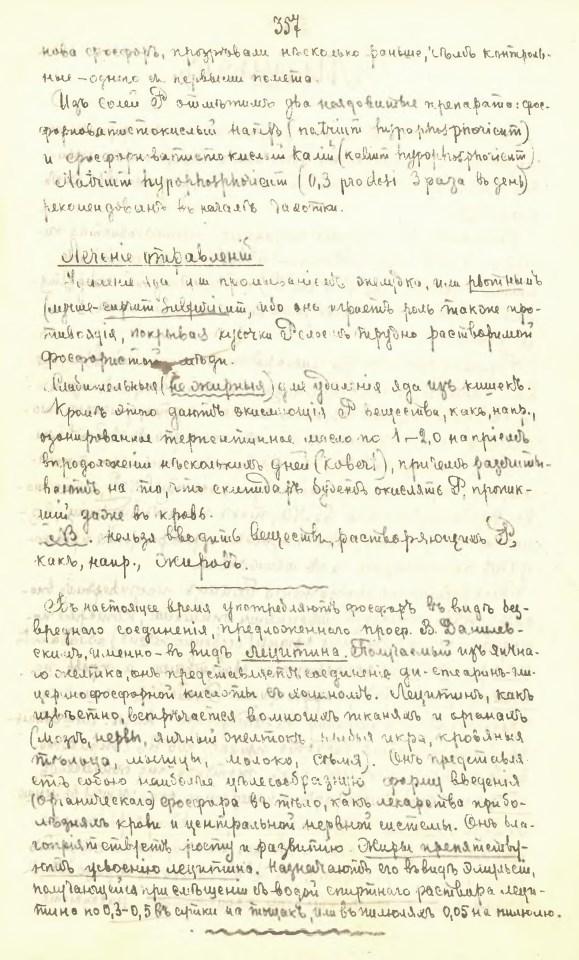 357
нова фосфоръ, прозрѣвали нѣсколько раньше, чѣмъ контроль-
ные – одного съ первыми помета.
Изъ солей P отмѣтимъ два неядовитые препарата: фос-
форноватистокислый натръ (natrium hypophosphoricum)
и фосфорноватистокислый калій (kalium hypophosphoricum).
Natrium hypophosphoricum (0,3 pro dosi 3 раза въ день)
рекомендованъ въ началѣ чахотки.
Лѣченіе отравленій
яда или промываніемъ желудка, или рвотнымъ
(лучше – cuprum sulfuricum, ибо онъ играетъ роль также про-
тивоядія, покрывая кусочки P слоемъ трудно растворимой
фосфористой мѣди.
Слабительныя (не жирныя) для удаленія яда изъ кишекъ.
Кромѣ этого даютъ окисляющія P вещества, какъ, напр.,
озонированное терпентинное масло по 1–2,0 на пріемъ
впродолженіи нѣсколькихъ дней (Kobert), причемъ разсчиты-
ваютъ на то, что скипидаръ будетъ окислять P, проник-
шій даже въ кровь.
NB. нельзя вводить веществъ, растворяющихъ P,
какъ, напр., жировъ.
Въ настоящее время употребляютъ фосфоръ въ видѣ без-
вреднаго соединенія, предложеннаго проф. В. Данилев-
скимъ, именно – въ видѣ лецитина. Получаемый изъ яична-
го желтка, онъ представляетъ соединеніе ди-стеаринъ-гли-
церинофосфорной кислоты съ холиномъ. Лецитинъ, какъ
извѣстно, встрѣчается во многихъ тканяхъ и органахъ
(мозгъ, нервы, яичный желтокъ, рыбья икра, кровяныя
тѣльца, мышцы, молоко, сѣмя). Онъ представля-
етъ собою наиболѣе цѣлесообразную форму введенія
(органическаго) фосфора въ тѣло, какъ лекарства при бо-
лѣзняхъ крови и центральной нервной системы. Онъ бла-
гопріятствуетъ росту и развитію. Жиры препятству-
ютъ усвоенію лецитина. Назначаютъ его въ видѣ эмульсіи,
получающейся при смѣшеніи съ водой спиртнаго раствора леци-
тина по 0,3–0,5 въ сутки на тощакъ, или въ пилюляхъ 0,05 на пилюлю.